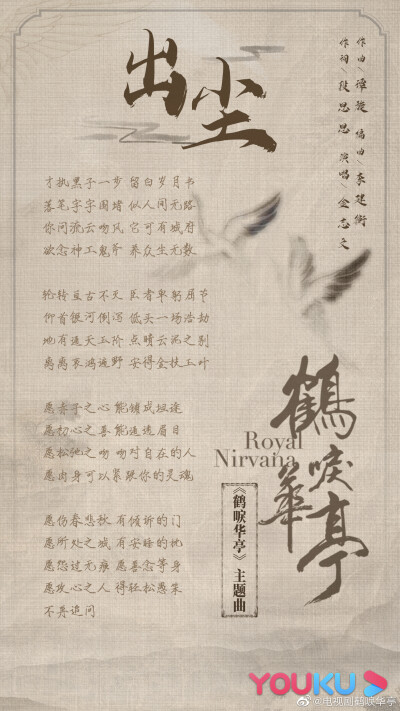 出尘
作曲/谭旋 编曲/李建衡
作词/段思思 演唱/金志文
才执黑子一步 留白岁月书
落笔字字围堵 似人间无路
你问流云吻风 它可有城府
欲念神工鬼斧 养众生无数
轮转亘古不 臣者卑躬屈节
仰首银河倒泻 低头一场浩劫
地有连天玉阶 点晴云泥之别
离离哀鸿遍野 安得金枝玉叶
愿赤子之心能铺成坦途
愿初心之喜能遮遮眉目
愿松弛之吻 吻对自在的人
愿肉身可以紧跟你的灵魂
愿伤春悲秋 有倾诉的门
愿所处之城 有安睡的枕
愿怨过无痕 愿善念等身
愿攻心之人 得轻松愚笨
不再追问
鹤唳華亭
Royal
Nirvana
《鹤唳华亭》主题曲
YOUKU
@电视剧鹤唳华亭